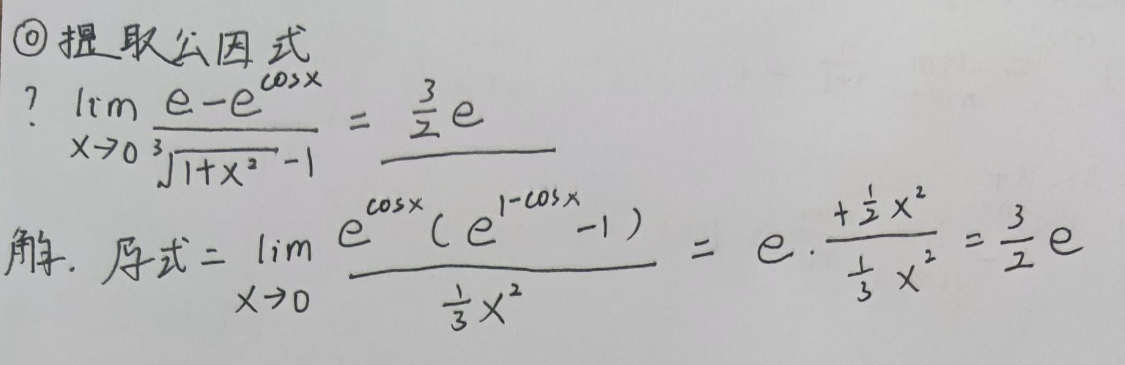 ◎ 提取公因式
? lim x→0 (e-e^cosx)/(∛(1+x²)-1) = 3/2 e
解. 原式 = lim x→0 e^cosx (e^(1-cosx) -1) / (1/3 x²) = e · (+1/2 x²)/(1/3 x²) = 3/2 e